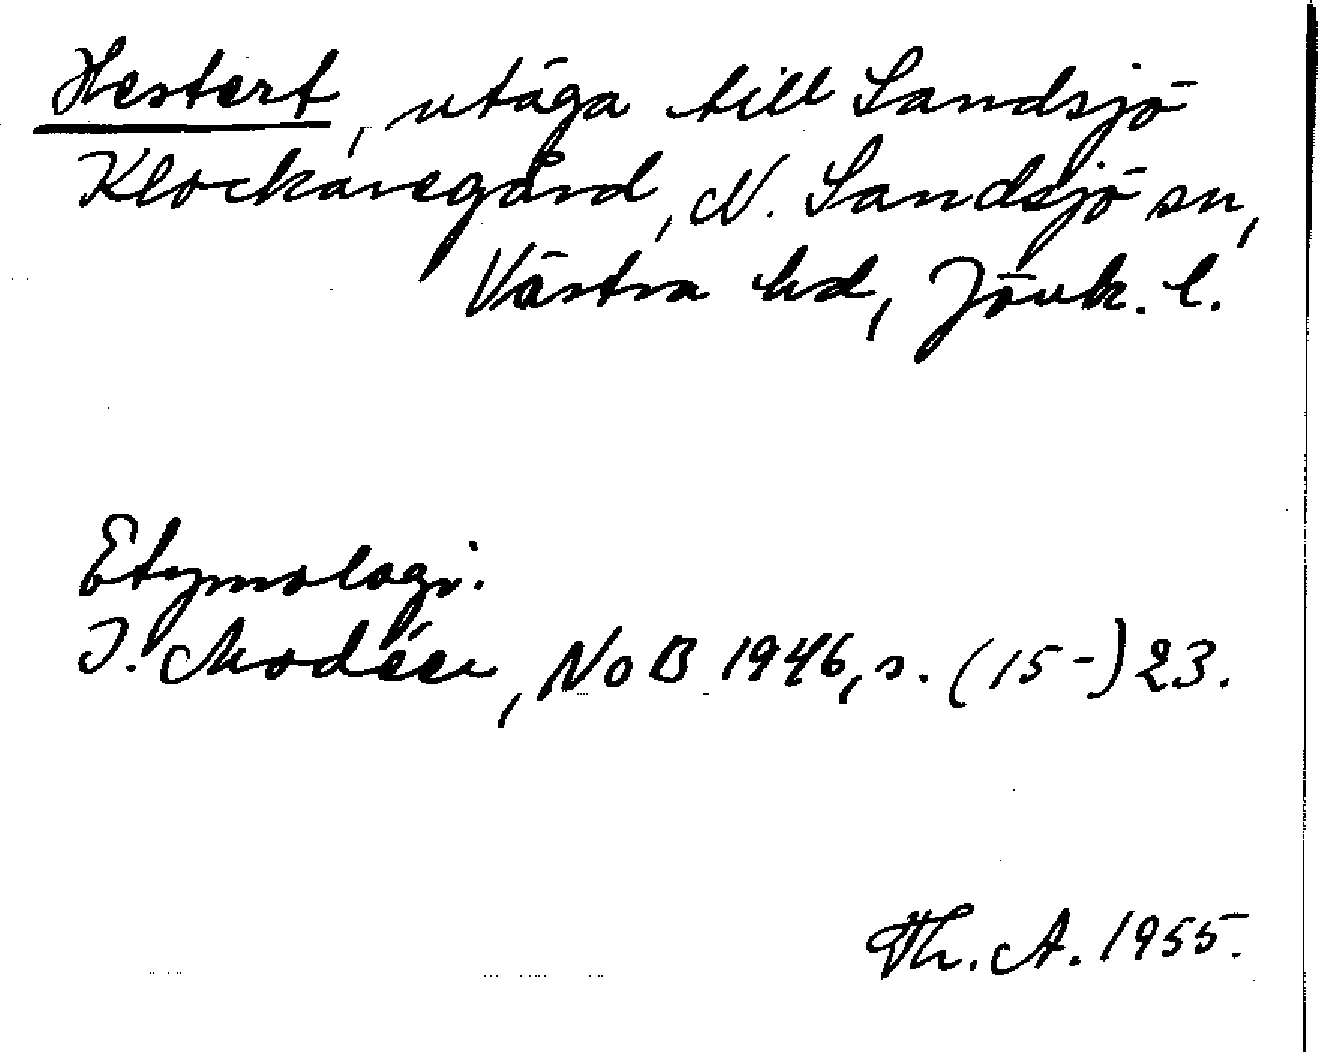 Hestert, utäga till Sandsjö
Klockaregård, N. Sandsjö sn,
Västra hd, Jönk. l.
Etymologi.
I. Modéer, NoB 1946, s. (15-) 23.
Th. A. 1955.